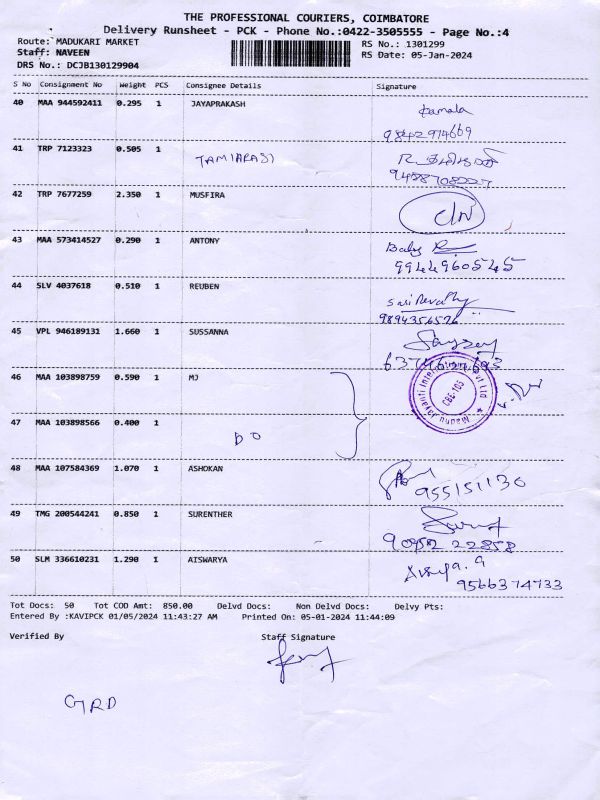 THE PROFESSIONAL COURIERS, COIMBATORE
Delivery Runsheet - PCK - Phone No.:0422-3505555 - Page No.:4
Route: MADUKARI MARKET
RS No.: 1301299
Staff: NAVEEN
RS Date: 05-Jan-2024
DRS No.: DCJB130129904
S No Consignment No Weight PCS Consignee Details Signature
40 MAA 944592411 0.295 1 JAYAPRAKASH Kamala
9842974669
41 TRP 7123323 0.505 1
42 TRP 7677259 2.350 1 MUSFIRA
43 MAA 573414527 0.290 1 ANTONY Baby
9944960545
44 SLV 4037618 0.510 1 REUBEN
9894356526
45 VPL 946189131 1.660 1 SUSSANNA
46 MAA 103898759 0.590 1 MJ
CBE-105
47 MAA 103898566 0.400 1
DO
48 MAA 107584369 1.070 1 ASHOKAN
955151130
49 TMG 200544241 0.850 1 SURENTHER
22858
50 SLM 336610231 1.290 1 AISWARYA
9566374733
Tot Docs: 50 Tot COD Amt: 850.00 Delvd Docs: Non Delvd Docs: Delvy Pts:
Entered By :KAVIPCK 01/05/2024 11:43:27 AM Printed On: 05-01-2024 11:44:09
Verified By Staff Signature